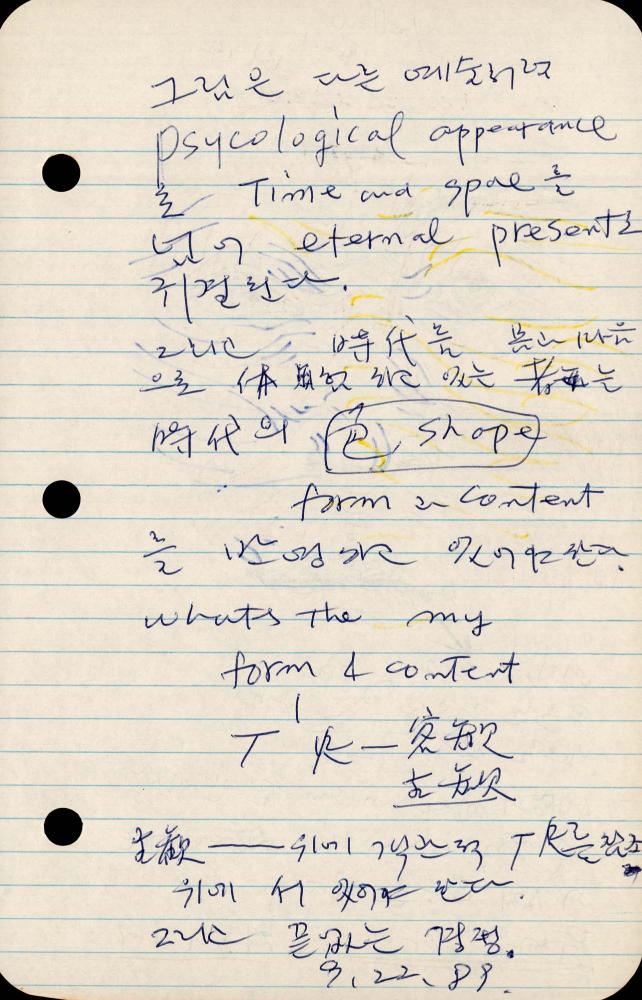 그림은 다른 예술처럼
psycological appearance
를 Time and space를
넘어 eternal present로
귀결된다.
그리고 時代를 몸과 마음
으로 体驗하고 있는 者는
時代의 色, shape
form과 content
를 반영하고 있어야한다.
whats the my
form & content
T 火 — 客觀
主觀
主觀 — 위에 객관적 T 火를
위에 서 있어야 한다.
그리고 끝까는 정정.
9, 22, 89.